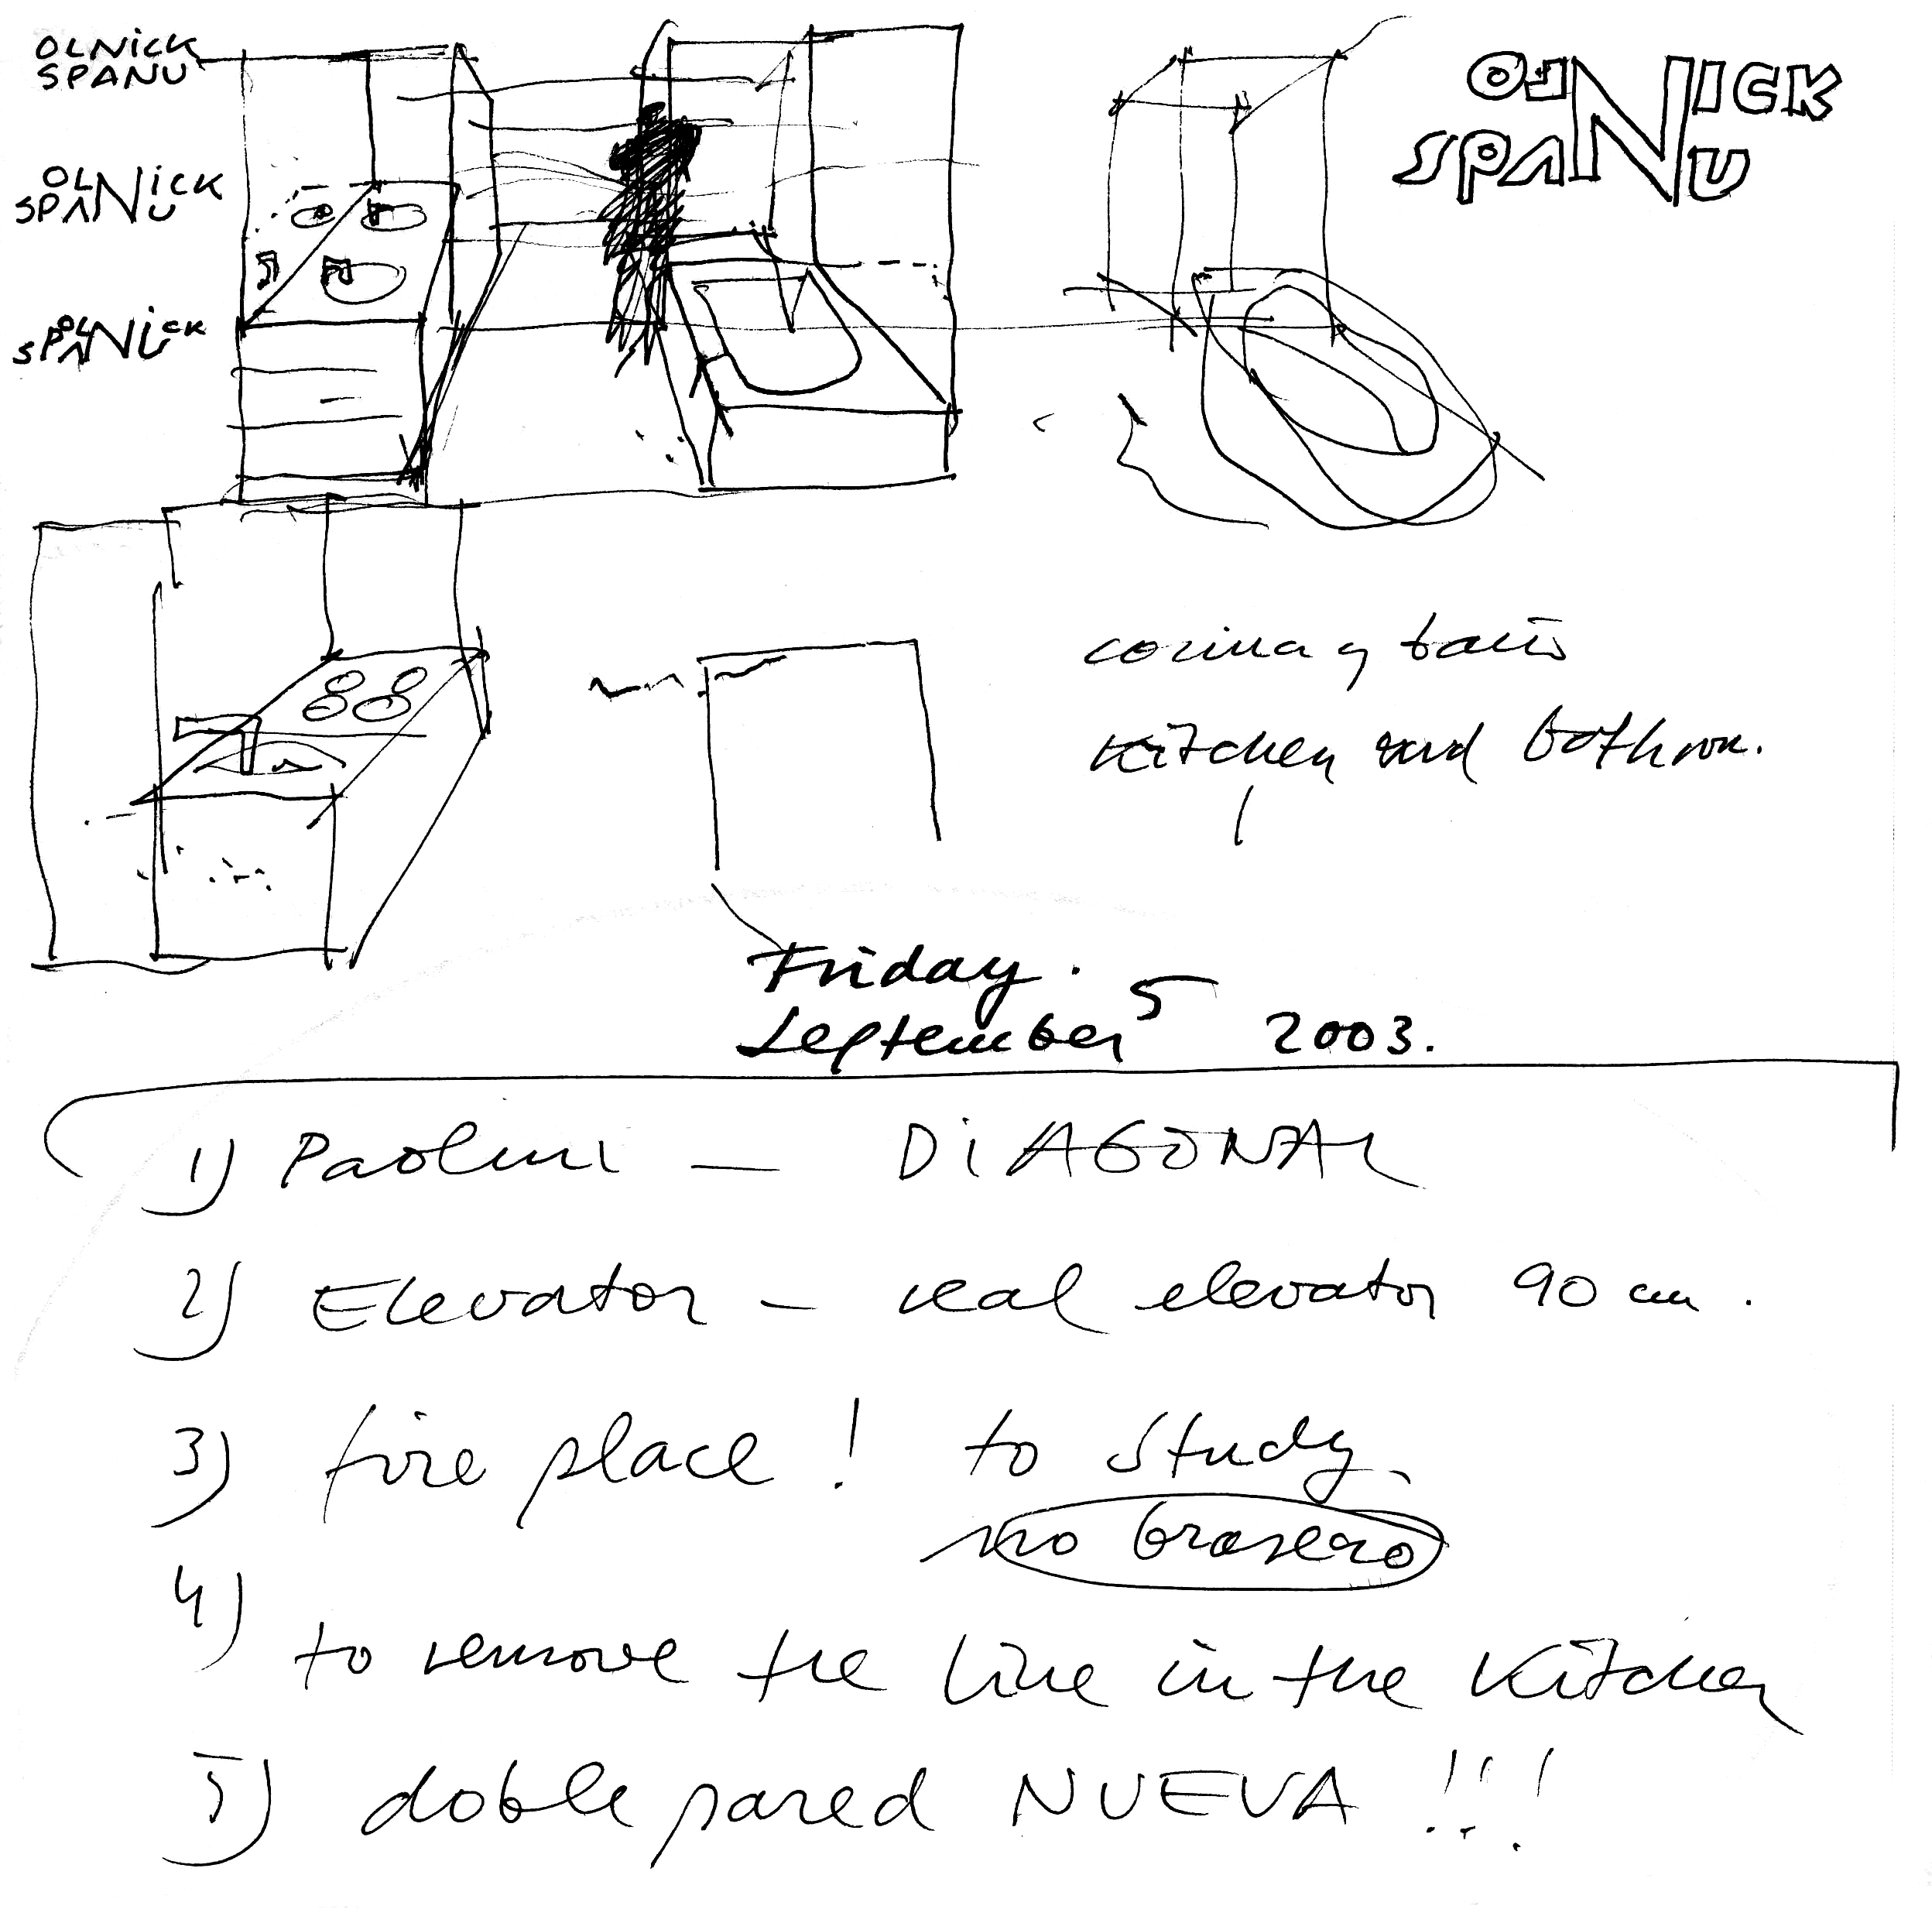 OLNiCK
SPANU
OLNiCK
SPANU
OLNiCK
SPANU
OLNICK
SPANU
cocina y baño
kitchen and bathrom.
Friday.
September 5 2003.
1) Paolini — DiAGONAL
2) Elevator — real elevator 90 cm.
3) fire place! to study
no brasero
4) to remove the line in the Kitchen
5) doble pared NUEVA !!!